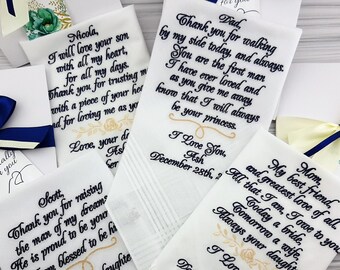 for you
Nicola,
I will love your son
with all my heart,
for all my days.
Thank you for trusting me
with a piece of your heart
and for loving me as your
Love, your
Dad,
Thank you for walking
by my side today, and always.
You are the first man
I have ever loved and
as you give me away
know that I will always
be your princess.
I Love You,
Ash
December 28th, 2
Scott,
Thank you for raising
the man of my dreams
He is proud to be your
am blessed to be
daughter
Mom,
My best friend,
and greatest love of all
All that I am, I owe to you
Today a bride,
Tomorrow a wife,
Always your daughter
I Love